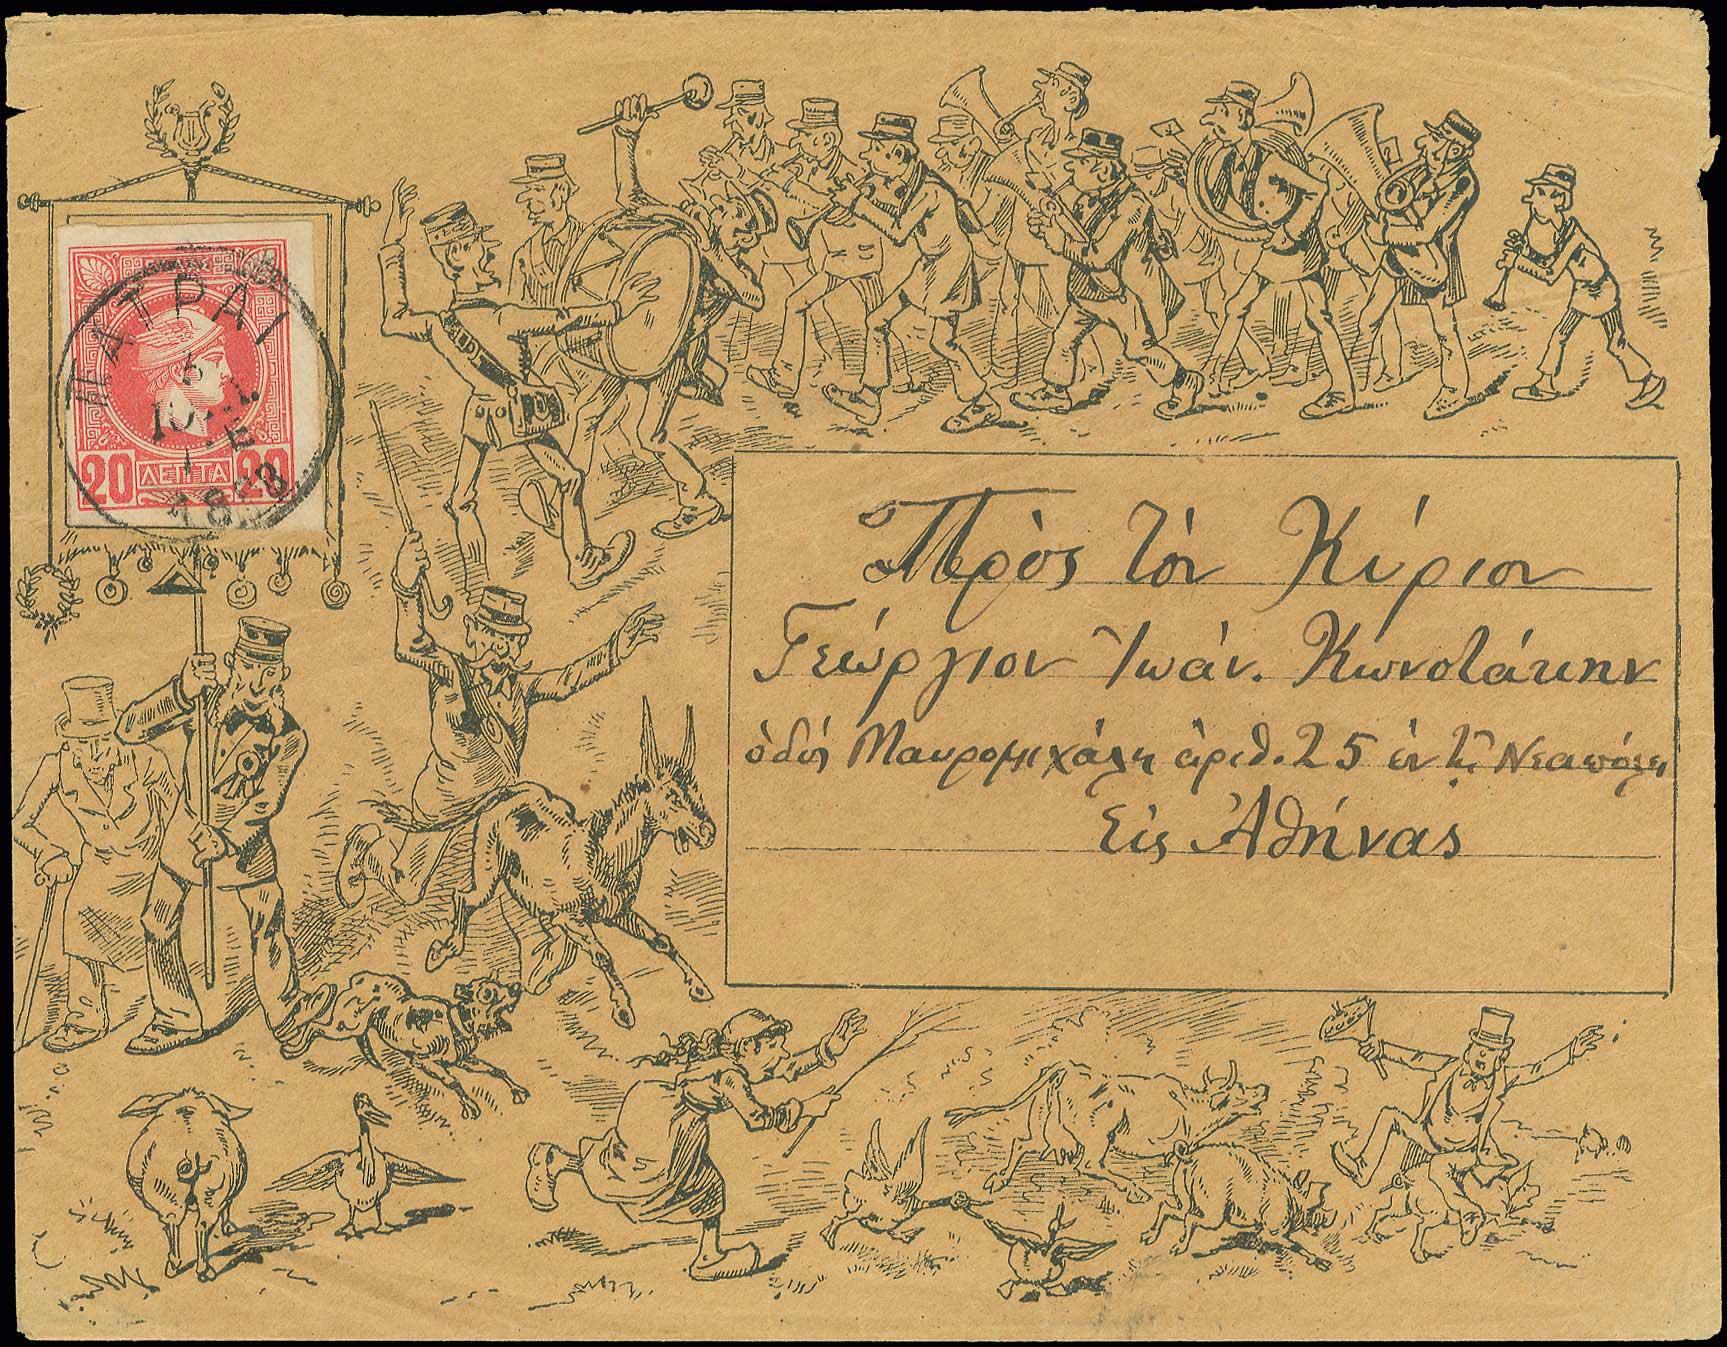 ΠΑΤΡΑΙ
20 ΛΕΠΤΑ 20
Πρὸς τὸν Κύριον
Γεώργιον Ἰωάν. Κωνστάκην
ὁδὸς Μαυρομιχάλη ἀριθ. 25 ἐν τῇ Νεαπόλει
Εἰς Ἀθήνας